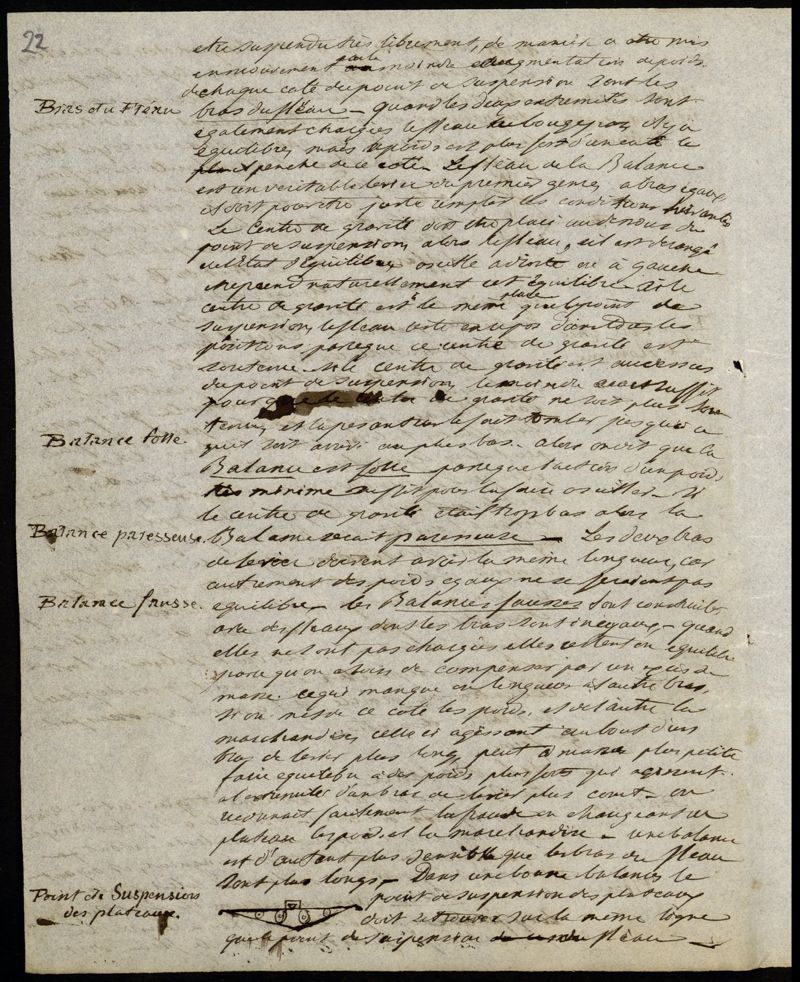 22
être suspendu très librement, de manière a être mis
en mouvement par la moindre augmentation de poids.
de chaque coté du point de suspension sont les
Bras du Fléau
bras du fléau - quand les deux extremités sont
également chargées le fléau ne bouge pas, il y a
équilibre, mais si le poids est plus fort d'un coté le
fléau penche de ce coté - Le fléau de la Balance
est un veritable levier du premier genre, a bras egaux
et doit pour être juste remplir les conditions suivantes
Le centre de gravité doit être placé au dessous du
point de suspension, alors le fléau, s'il est derangé
de l'état d'équilibre, oscille a droite ou à gauche
et reprend naturellement cet équilibre - Si le
centre de gravité est à la même place que le point de
suspension, le fléau reste en repos dans toutes les
positions parceque ce centre de gravité est
soutenu - si le centre de gravité est au dessus
du point de suspension, le moindre suffit
pour que le centre de gravité ne soit plus sou-
tenu, et la pesanteur le fait tomber jusqu'a ce
Balance folle
qu'il soit arrivé au plus bas - alors on dit que la
Balance est folle parceque l'action d'un poids
très minime suffit pour la faire osciller - Si
le centre de gravité était trop bas alors la
Balance paresseuse.
Balance serait paresseuse - Les deux bras
de levier doivent avoir la même longueur, car
autrement des poids egaux ne se feraient pas
Balance fausse.
equilibre - les Balances fausses sont construites
avec des fléaux dont les bras sont inégaux - quand
elles ne sont pas chargées elles restent en equilibre
parce qu'on a soin de compenser par un excès de
masse ce qui manque en longueur à l'autre bras.
si on met de ce coté les poids, et de l'autre la
marchandise, celle ci agissant au bout d'un
bras de levier plus long, peut à masse plus petite
faire equilibre a des poids plus forts qui agissent
a l'extremité d'un bras de levier plus court - on
reconnait facilement la fraude en changeant de
plateau les poids et la marchandise - une balance
est d'autant plus sensible que les bras du fléau
Point de Suspension
des plateaux.
sont plus longs - Dans une bonne balance, le
point de suspension des plateaux
doit se trouver sur la même ligne
que le point de suspension du fléau -